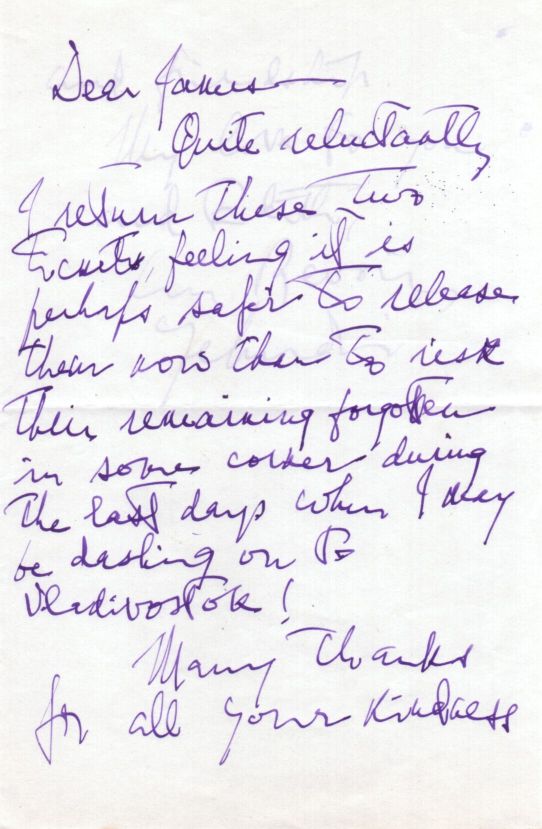 Dear James —
Quite reluctantly
I return these two
tickets, feeling it is
perhaps safer to release
them now than to risk
their remaining forgotten
in some corner during
the last days when I may
be dashing on to
Vladivostok!
Many thanks
for all your kindness